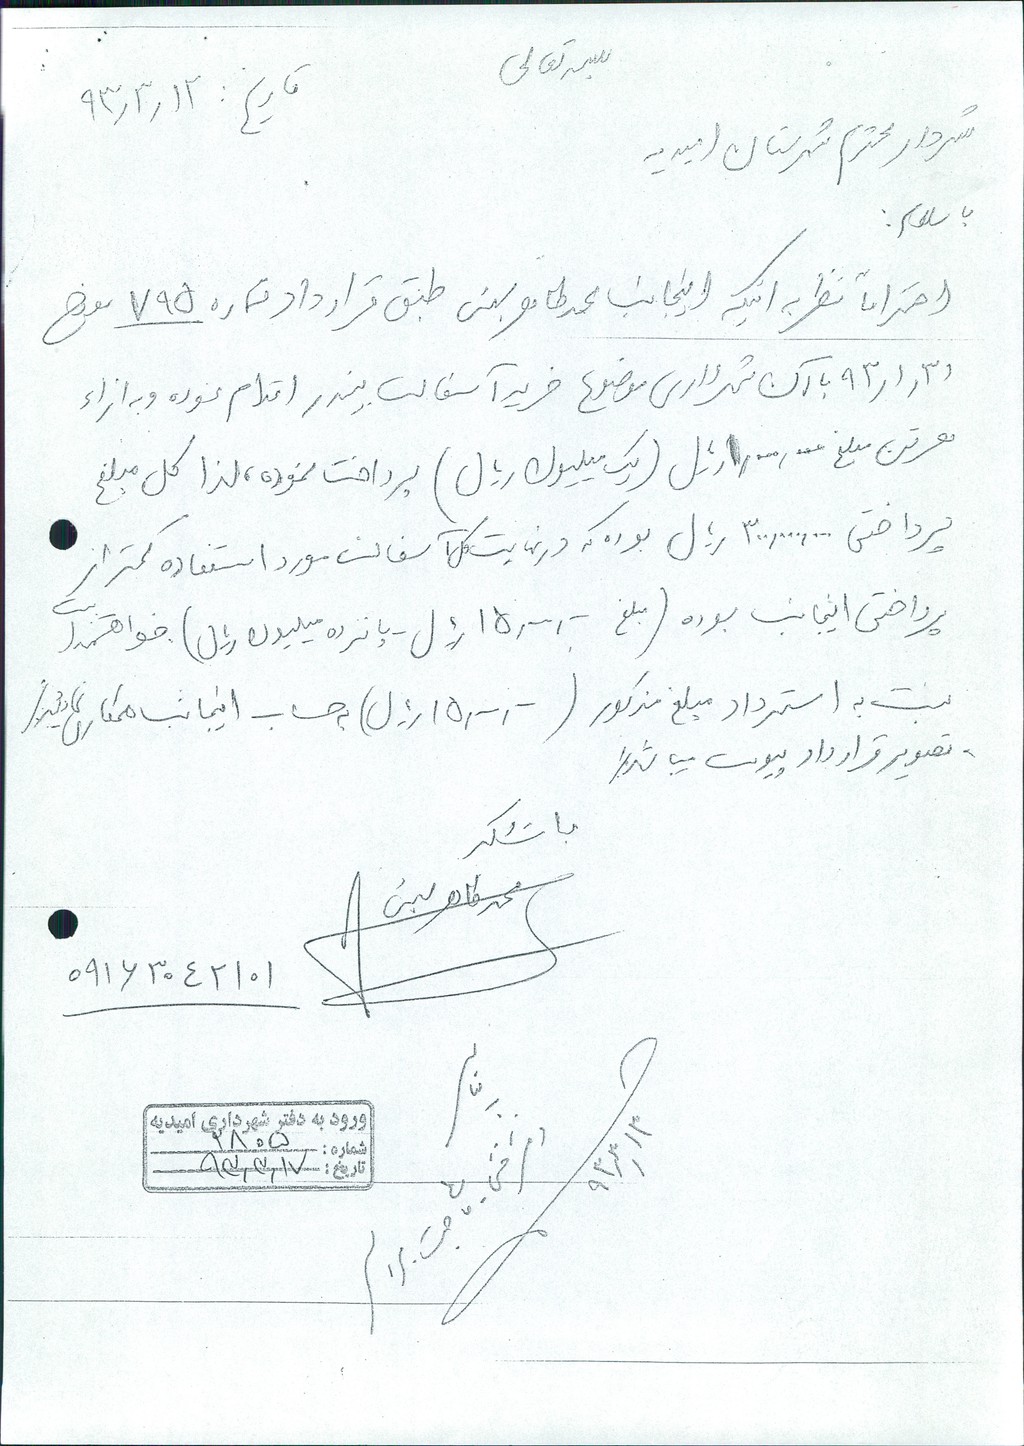 بسمه تعالی
تاریخ: ۹۳٫۳٫۱۲
شهردار محترم شهرستان امیدیه
با سلام:
احتراماً نظر به اینکه اینجانب محمد طاهر بهنی طبق قرارداد شماره ۷۹۵ مورخ
۹۳٫۱٫۳۱ با آن شهرداری موضوع خرید آسفالت بیندر اقدام نموده و به ازاء
هر تن مبلغ ۱٫۰۰۰٫۰۰۰ ریال (یک میلیون ریال) پرداخت نموده، لذا کل مبلغ
پرداختی ۳۰٫۰۰۰٫۰۰۰ ریال بوده که در نهایت کل آسفالت مورد استفاده کمتر از
پرداختی اینجانب بوده (مبلغ ۱۵٫۰۰۰٫۰۰۰ ریال - پانزده میلیون ریال) خواهشمند است
نسبت به استرداد مبلغ مذکور (۱۵٫۰۰۰٫۰۰۰ ریال) به حساب اینجانب همکاری نمائید.
- تصویر قرارداد پیوست میباشد.
با تشکر
محمد طاهر بهنی
۰۹۱۶۳۰۴۲۱۰۱
ورود به دفتر شهرداری امیدیه
شماره: ۲۸۰۵
تاریخ: ۹۳٫۳٫۱۷
۹۳٫۳٫۱۳